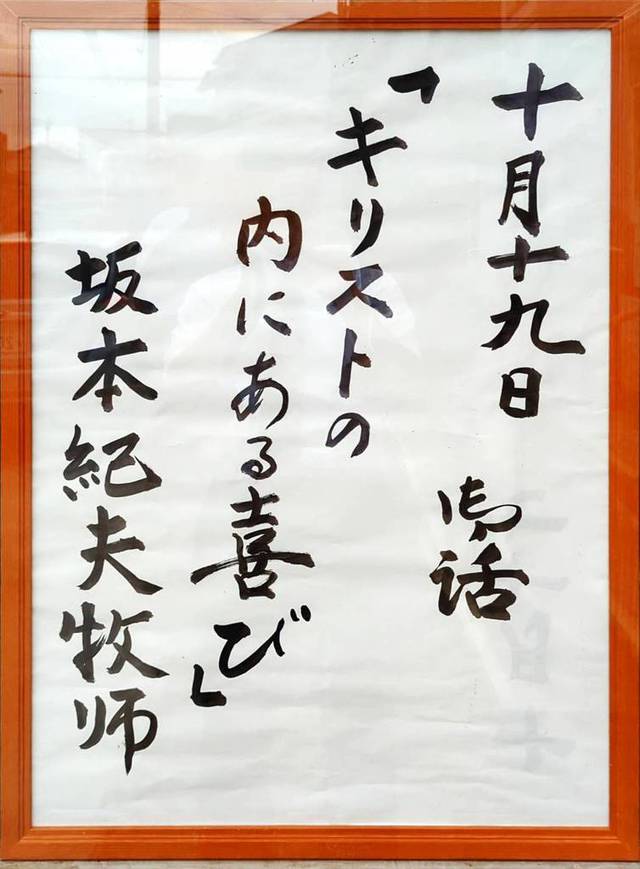 十月十九日
御話
「キリストの
内にある喜び」
坂本紀夫牧師